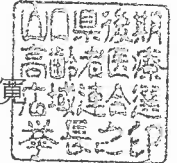 山口県後期
高齢者医療
広域連合選
挙長之印
寛